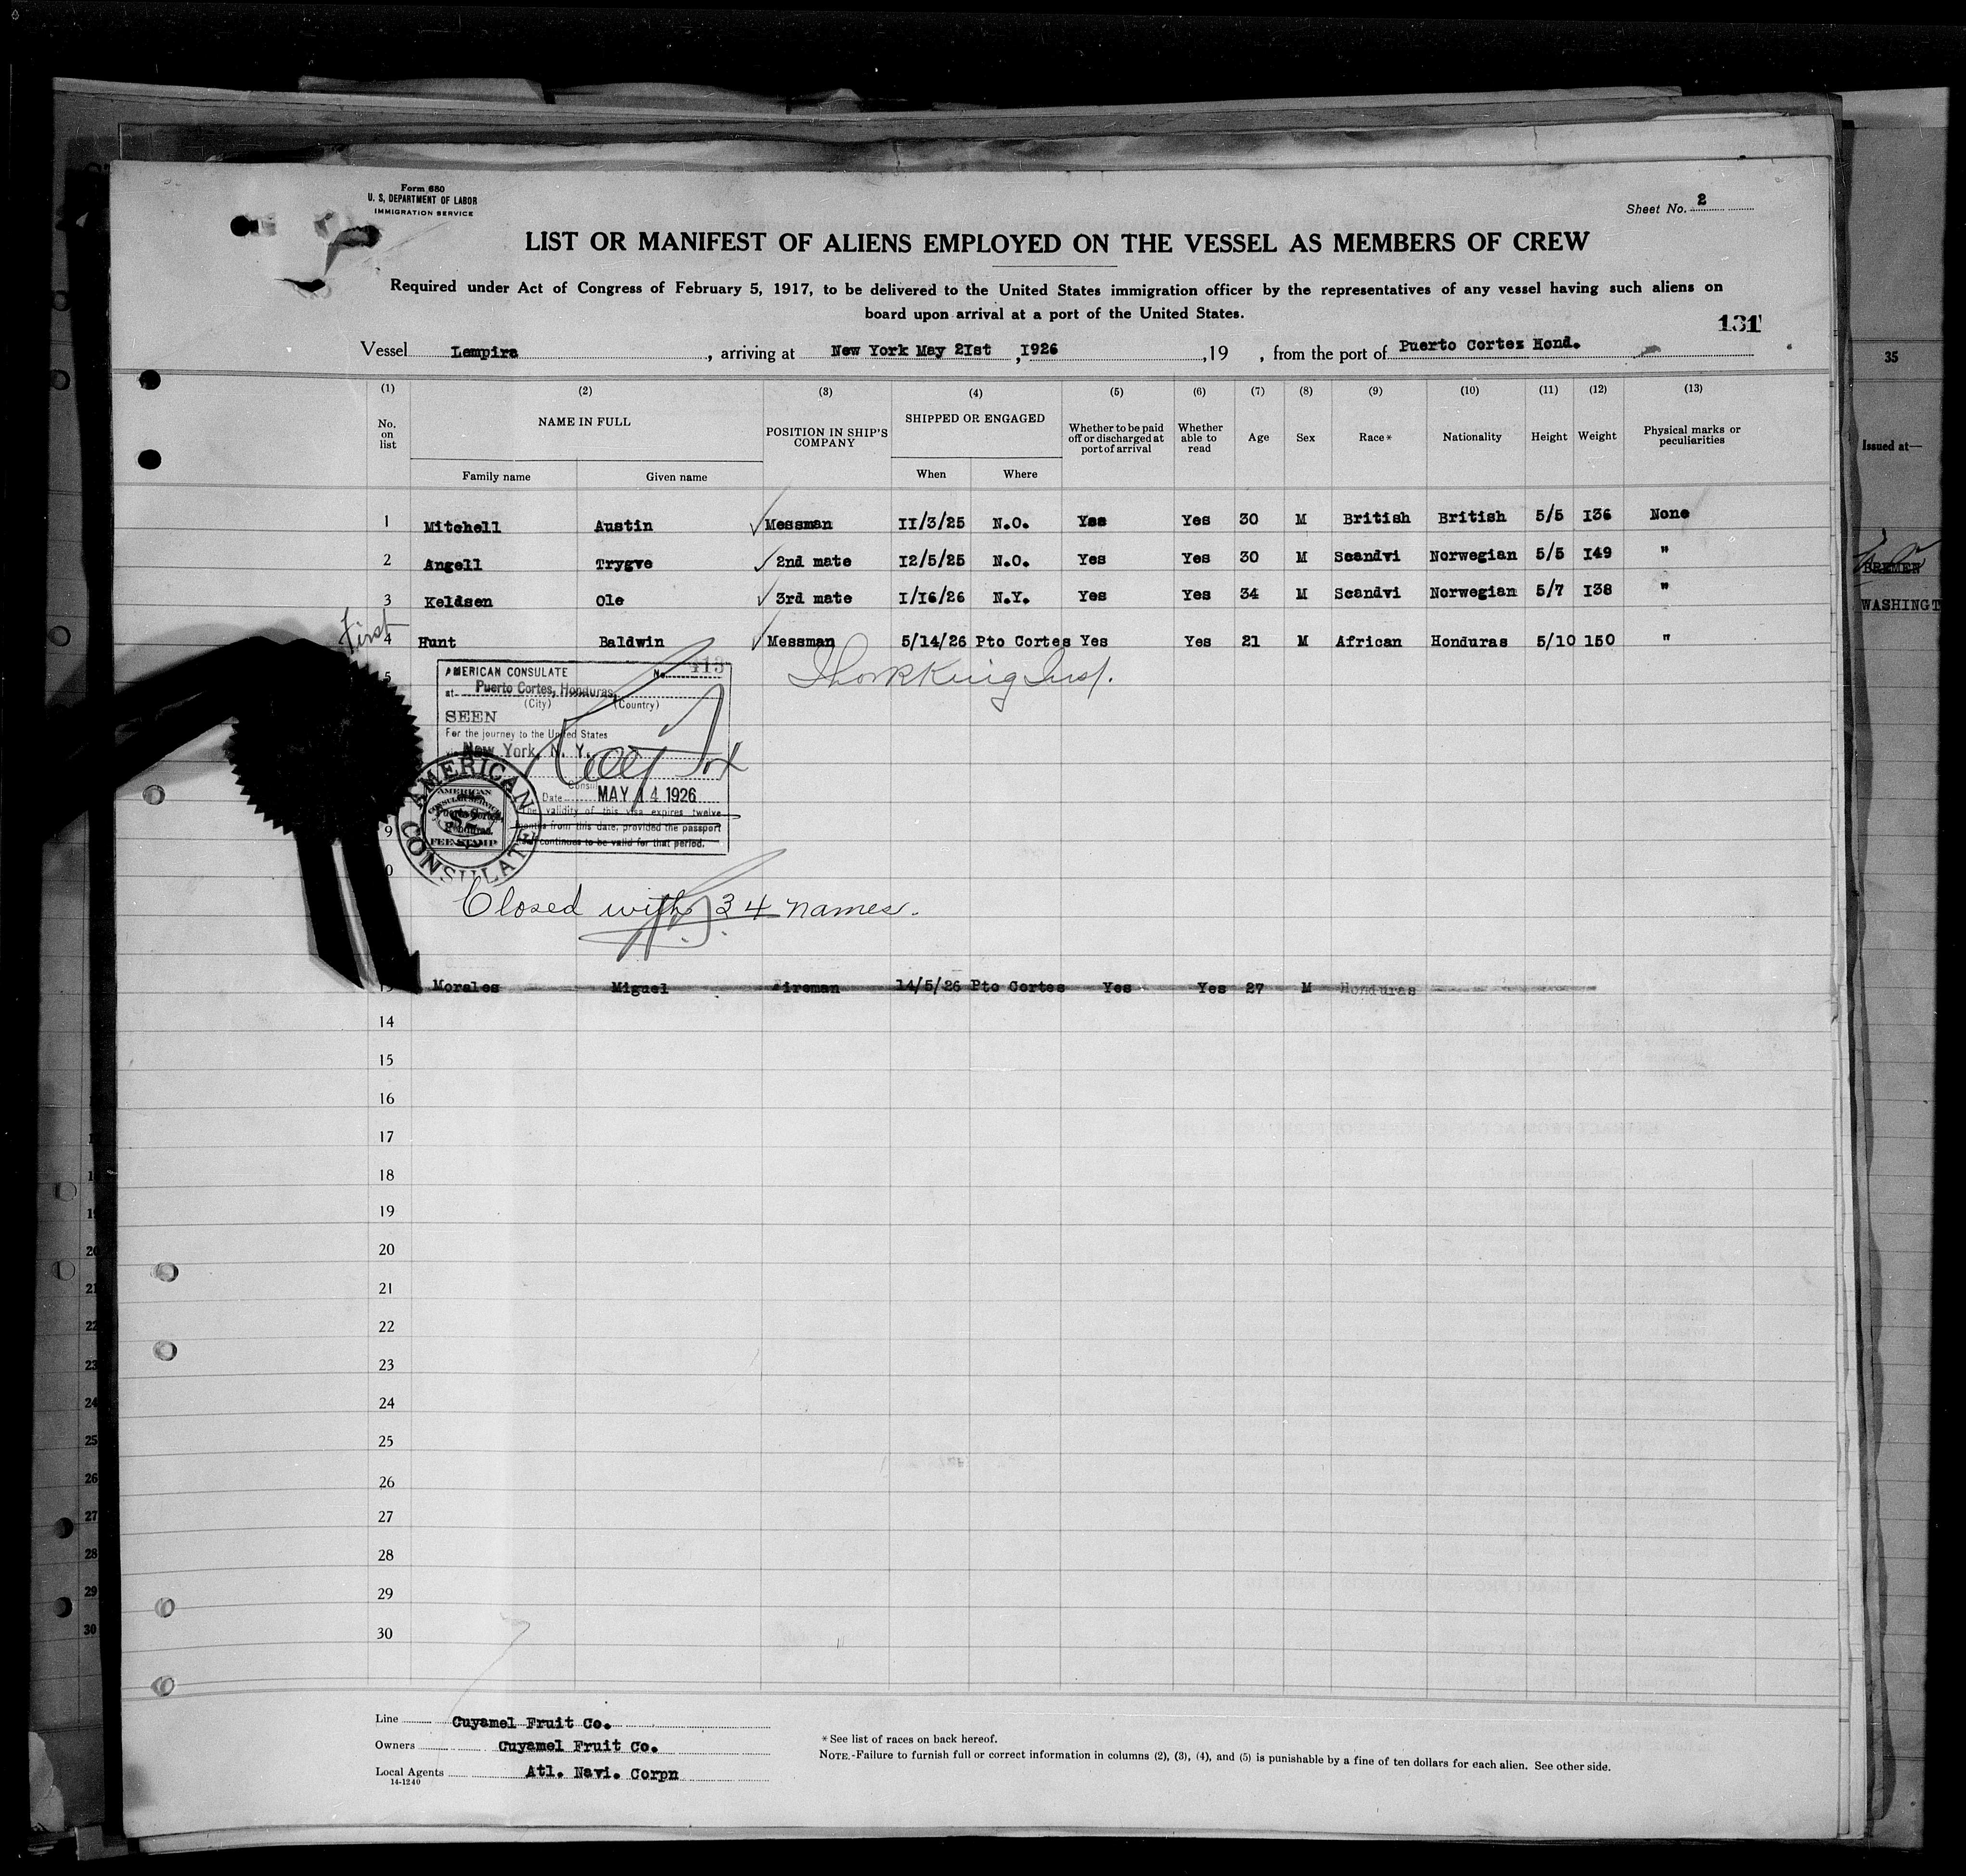 Form 680
U. S. DEPARTMENT OF LABOR
IMMIGRATION SERVICE
Sheet No. 2
LIST OR MANIFEST OF ALIENS EMPLOYED ON THE VESSEL AS MEMBERS OF CREW
Required under Act of Congress of February 5, 1917, to be delivered to the United States immigration officer by the representatives of any vessel having such aliens on
board upon arrival at a port of the United States.
131
Vessel Lempira, arriving at New York May 2Ist, I926, 19 , from the port of Puerto Cortez Hond.
(1) (2) (3) (4) (5) (6) (7) (8) (9) (10) (11) (12) (13)
No. on list NAME IN FULL POSITION IN SHIP'S COMPANY SHIPPED OR ENGAGED Whether to be paid off or discharged at port of arrival Whether able to read Age Sex Race* Nationality Height Weight Physical marks or peculiarities
Family name Given name When Where
1 Mitchell Austin Messman II/3/25 N.O. Yes Yes 30 M British British 5/5 I36 None
2 Angell Trygve 2nd mate I2/5/25 N.O. Yes Yes 30 M Scandvi Norwegian 5/5 I49 "
3 Keldsen Ole 3rd mate I/I6/26 N.Y. Yes Yes 34 M Scandvi Norwegian 5/7 I38 "
First
4 Hunt Baldwin Messman 5/14/26 Pto Cortes Yes Yes 21 M African Honduras 5/10 150 "
5
AMERICAN CONSULATE No. 413
at Puerto Cortes, Honduras,
(City) (Country)
SEEN
For the journey to the United States
via New York, N. Y.
Consul
Date MAY 14 1926
The validity of this visa expires twelve
months from this date, provided the passport
continues to be valid for that period.
AMERICAN CONSULATE
AMERICAN
CONSULAR SERVICE
Puerto Cortes,
Honduras.
FEE STAMP
9
0
Closed with 34 names.
13 Morales Miguel Fireman 14/5/26 Pto Cortes Yes Yes 27 M Honduras
14
15
16
17
18
19
20
21
22
23
24
25
26
27
28
29
30
Line Cuyamel Fruit Co.
Owners Cuyamel Fruit Co.
Local Agents Atl. Navi. Corpn
14-1240
*See list of races on back hereof.
NOTE.-Failure to furnish full or correct information in columns (2), (3), (4), and (5) is punishable by a fine of ten dollars for each alien. See other side.
35
Issued at—
BREMEN
WASHINGT
20
21
22
23
24
25
26
27
28
29
30